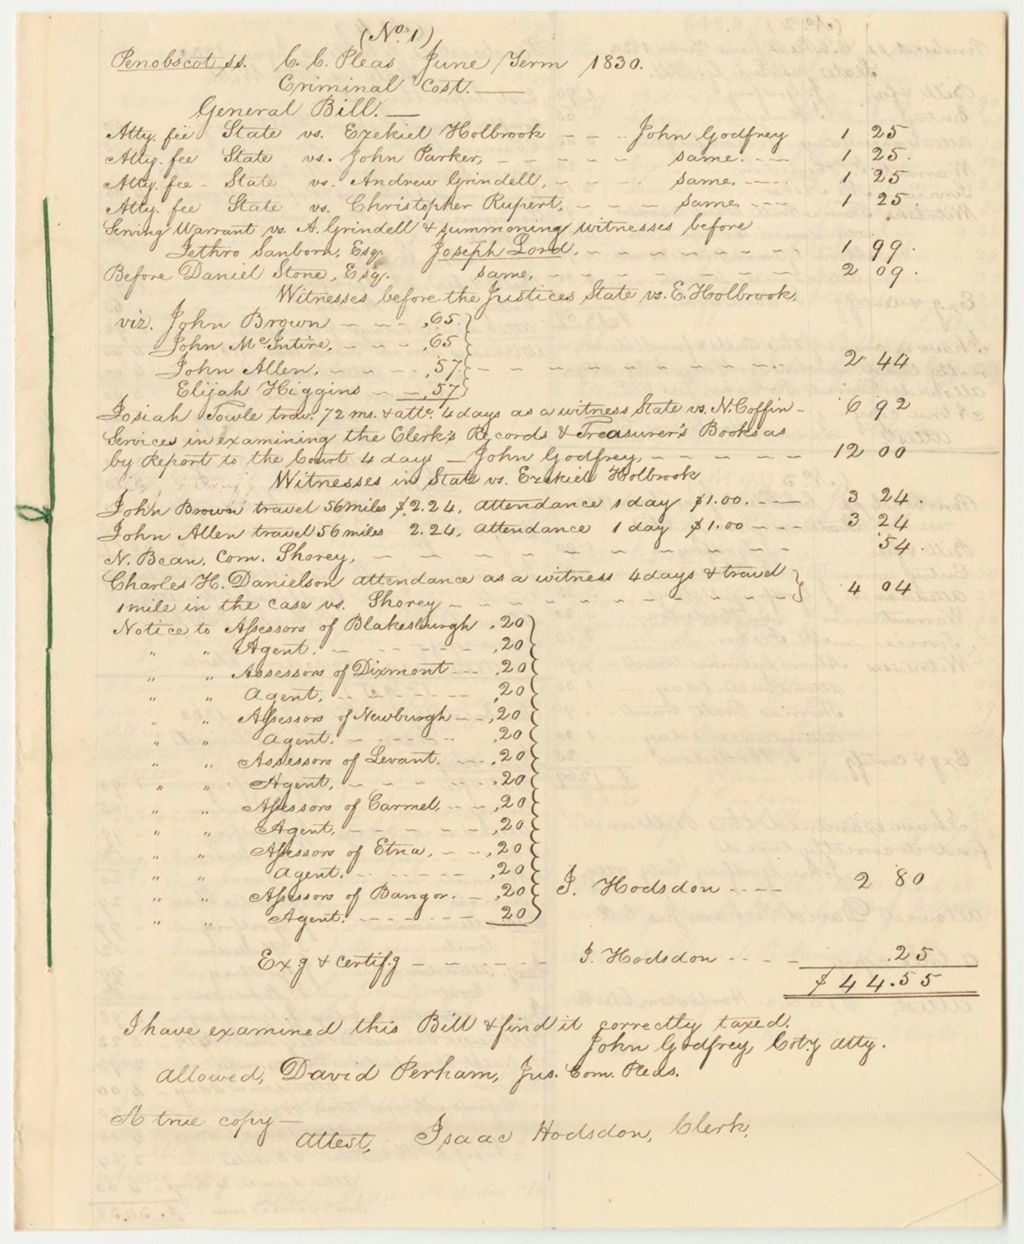 (No. 1)
Penobscot ss. C. C. Pleas June Term 1830.
Criminal Cost. —
General Bill. —
Atty. fee State vs. Ezekiel Holbrook - - - John Godfrey 1 25
Atty. fee State vs. John Parker, - - - - - same. - - - 1 25.
Atty. fee - State vs. Andrew Grindell, - - - - same. - - - 1 25
Atty. fee State vs. Christopher Rupert, - - - same. - - - 1 25.
Serving Warrant vs. A. Grindell & summoning witnesses before
Jethro Sanborn, Esq. Joseph Lord. - - - - - - - 1 99.
Before Daniel Stone, Esq. same, - - - - - - - - 2 09.
Witnesses before the Justices State vs. E. Holbrook.
viz. John Brown - - - ,65
John McIntire, - - - - ,65
John Allen, - - - - ,57 - - - - - - - - - 2 44
Elijah Higgins - - ,57
Josiah Towle trav. 72 ms. & atte. 4 days as a witness State vs. N. Coffin - 6 92
Services in examining the Clerk's Records & Treasurer's Books as
by Report to the Court 4 days — John Godfrey, - - - - - 12 00
Witnesses in State vs. Ezekiel Holbrook
John Brown travel 56 miles $2.24, attendance 1 day $1.00. - - - 3 24.
John Allen travel 56 miles 2.24, attendance 1 day $1.00 - - - 3 24
N. Bean, Com. Shorey, - - - - - - - - - - 54.
Charles H. Danielson attendance as a witness 4 days & travel
1 mile in the case vs. Shorey - - - - - - - - - 4 04
Notice to Assessors of Blakesburgh ,20
" " Agent. - - - - - ,20
" " Assessors of Dixmont - - ,20
" " Agent, - - - - - ,20
" " Assessors of Newburgh - - ,20
" " Agent. - - - - - ,20
" " Assessors of Levant. - - ,20
" " Agent, - - - - - ,20
" " Assessors of Carmel, - - - ,20
" " Agent, - - - - - ,20
" " Assessors of Etna, - - - ,20
" " Agent. - - - - - ,20
" " Assessors of Bangor. - - ,20 I. Hodsdon - - - - 2 80
" " Agent. - - - - - 20
Exg & certifg - - - - - - I. Hodsdon - - - - .25
$ 44.55
I have examined this Bill & find it correctly taxed.
John Godfrey, Coty. Atty.
Allowed, David Perham, Jus. Com. Pleas.
A true copy —
Attest, Isaac Hodsdon, Clerk.